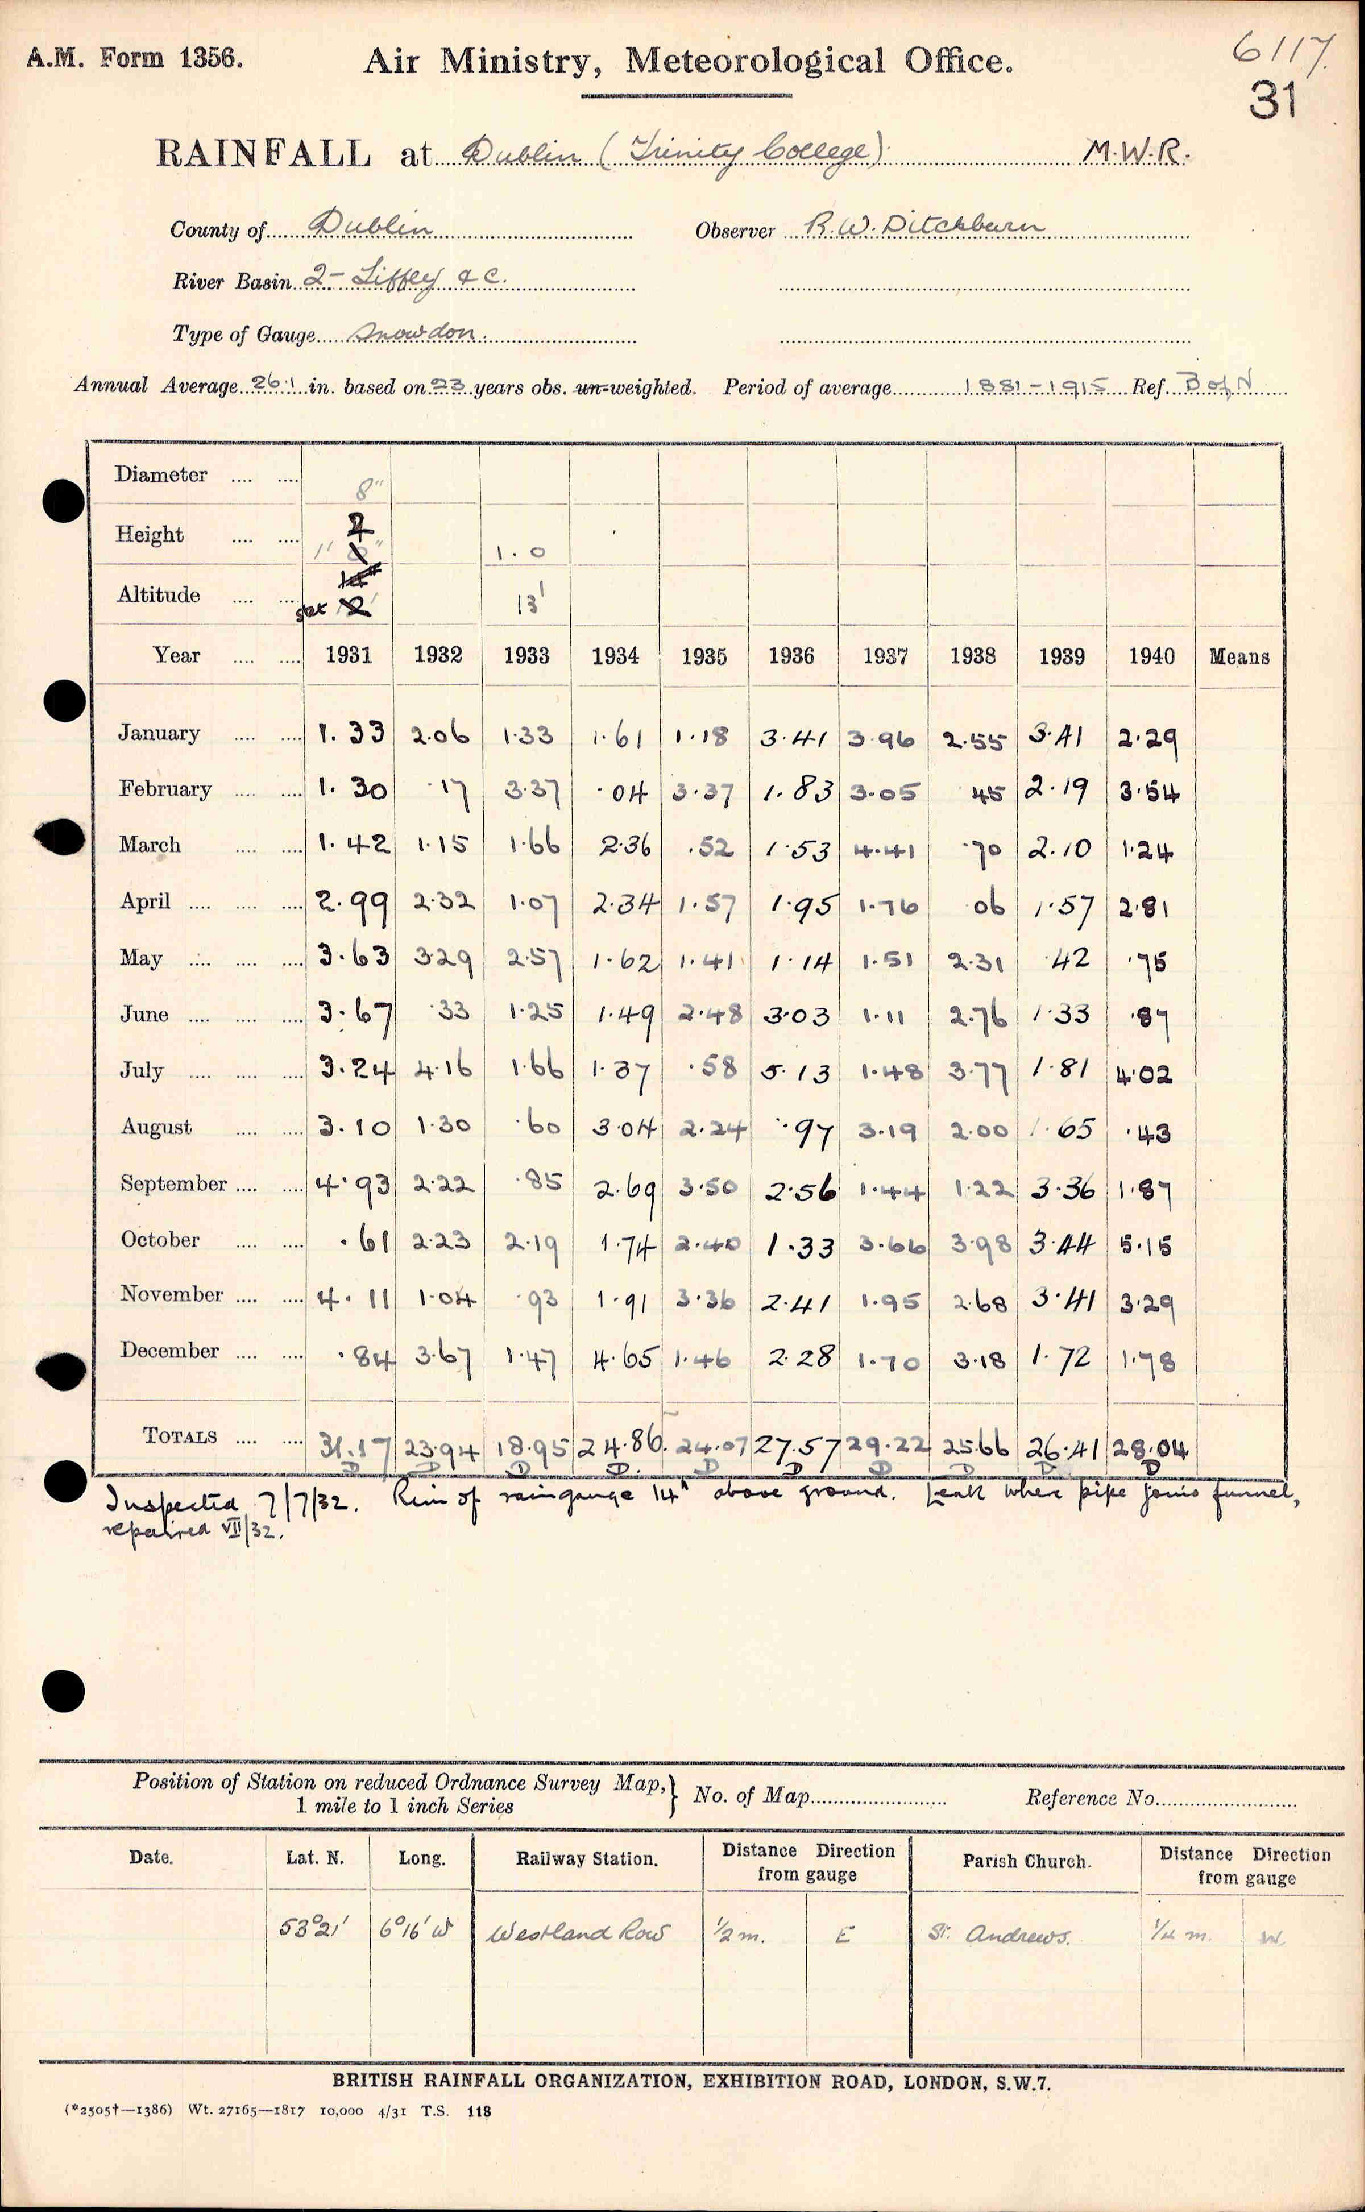 A.M. Form 1356.
Air Ministry, Meteorological Office.
6117.
31
RAINFALL at Dublin (Trinity College) M.W.R.
County of Dublin Observer R.W. Ditchburn
River Basin 2- Liffey &c.
Type of Gauge Snowdon.
Annual Average 26.1 in. based on 23 years obs. un-weighted. Period of average 1881-1915 Ref. B of N
Diameter 8"
Height 1' 1.0
Altitude 13'
Year 1931 1932 1933 1934 1935 1936 1937 1938 1939 1940 Means
January 1.33 2.06 1.33 1.61 1.18 3.41 3.96 2.55 3.41 2.29
February 1.30 .17 3.37 .04 3.37 1.83 3.05 .45 2.19 3.54
March 1.42 1.15 1.66 2.36 .52 1.53 4.41 .70 2.10 1.24
April 2.99 2.32 1.07 2.34 1.57 1.95 1.76 .06 1.57 2.81
May 3.63 3.29 2.57 1.62 1.41 1.14 1.51 2.31 .42 .75
June 3.67 .33 1.25 1.49 2.48 3.03 1.11 2.76 1.33 .87
July 3.24 4.16 1.66 1.37 .58 5.13 1.48 3.77 1.81 4.02
August 3.10 1.30 .60 3.04 2.24 .97 3.19 2.00 1.65 .43
September 4.93 2.22 .85 2.69 3.50 2.56 1.44 1.22 3.36 1.87
October .61 2.23 2.19 1.74 2.40 1.33 3.66 3.98 3.44 5.15
November 4.11 1.04 .93 1.91 3.36 2.41 1.95 2.68 3.41 3.29
December .84 3.67 1.47 4.65 1.46 2.28 1.70 3.18 1.72 1.78
TOTALS 31.17 23.94 18.95 24.86 24.07 27.57 29.22 25.66 26.41 28.04
D D D D. D D D D D D
Inspected 7/7/32. Rim of raingauge 14" above ground. Leak where pipe joins funnel,
repaired VII/32.
Position of Station on reduced Ordnance Survey Map,} No. of Map Reference No.
1 mile to 1 inch Series
Date. Lat. N. Long. Railway Station. Distance Direction from gauge Parish Church. Distance Direction from gauge
53°21' 6°16' W Westland Row 1/2 m. E St. Andrews. 1/4 m. W.
BRITISH RAINFALL ORGANIZATION, EXHIBITION ROAD, LONDON, S.W.7.
(*2505†—1386) Wt. 27165—1817 10,000 4/31 T.S. 118